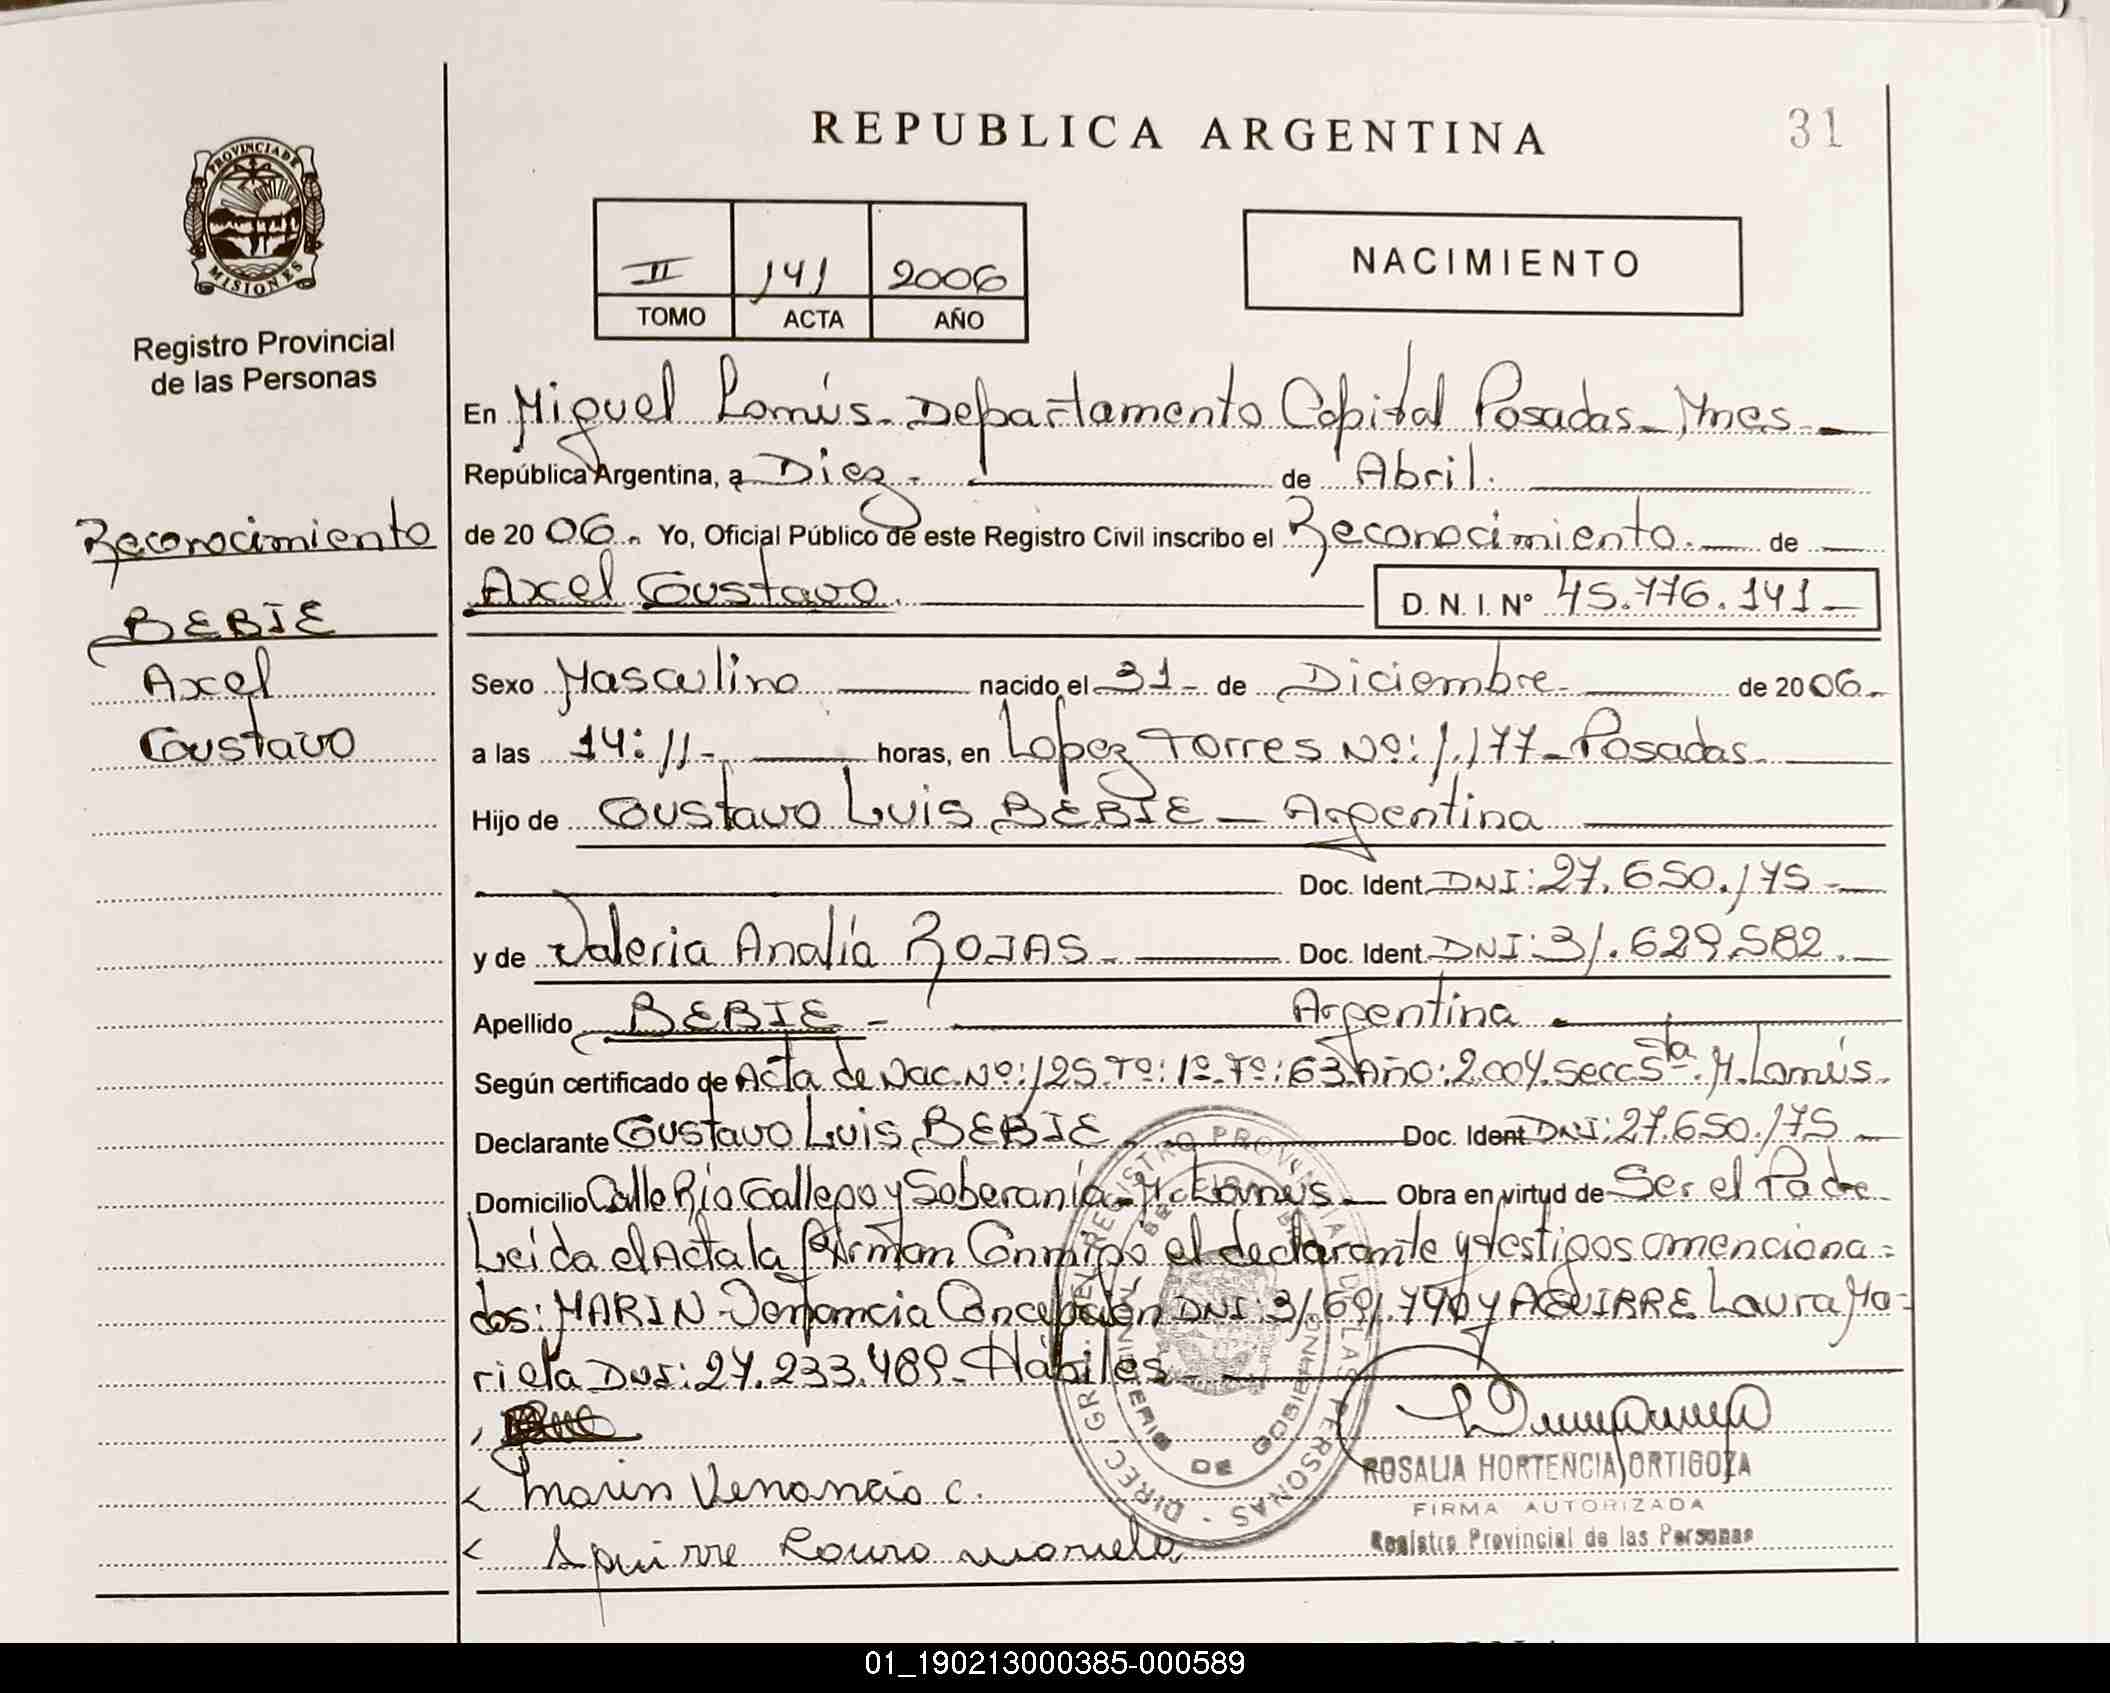 REPUBLICA ARGENTINA
31
PROVINCIA DE
MISIONES
Registro Provincial
de las Personas
II 141 2006
TOMO ACTA AÑO
NACIMIENTO
Reconocimiento
BEBIE
Axel
Gustavo
En Miguel Lanús - Departamento Capital Posadas - Mnes -
República Argentina, a Diez - de Abril.
de 2006. Yo, Oficial Público de este Registro Civil inscribo el Reconocimiento. de
Axel Gustavo. D. N. I. N° 45.776.141 -
Sexo Masculino nacido el 31 - de Diciembre - de 2006 -
a las 14:11 - horas, en Lopez Torres Nº: 1.177 - Posadas
Hijo de Gustavo Luis BEBIE - Argentina
Doc. Ident. DNI: 27.650.175 -
y de Valeria Analía ROJAS - Doc. Ident. DNI: 31.629.582. -
Apellido BEBIE - Argentina
Según certificado de Acta de Nac. Nº: 125. Tº: 1º. Fº: 63. Año: 2004. Secc 5ta. M. Lanús.
Declarante Gustavo Luis BEBIE - Doc. Ident. DNI: 27.650.175 -
Domicilio Calle Río Gallego y Soberanía - M. Lanus - Obra en virtud de Ser el Padre
Leída el Acta la firman Conmigo el declarante y testigos amenciona =
dos: MARIN - Venancia Concepción DNI: 31.691.790 y AGUIRRE Laura Ma =
riela DNI: 27.233.489 - Hábiles -
< Marin Venancia c.
< Aguirre Laura mariela
DIREC GRAL DEL REGISTRO PROVINCIAL DE LAS PERSONAS
MINISTERIO DE GOBIERNO
ROSALIA HORTENCIA ORTIGOZA
FIRMA AUTORIZADA
Registro Provincial de las Personas
01_190213000385-000589